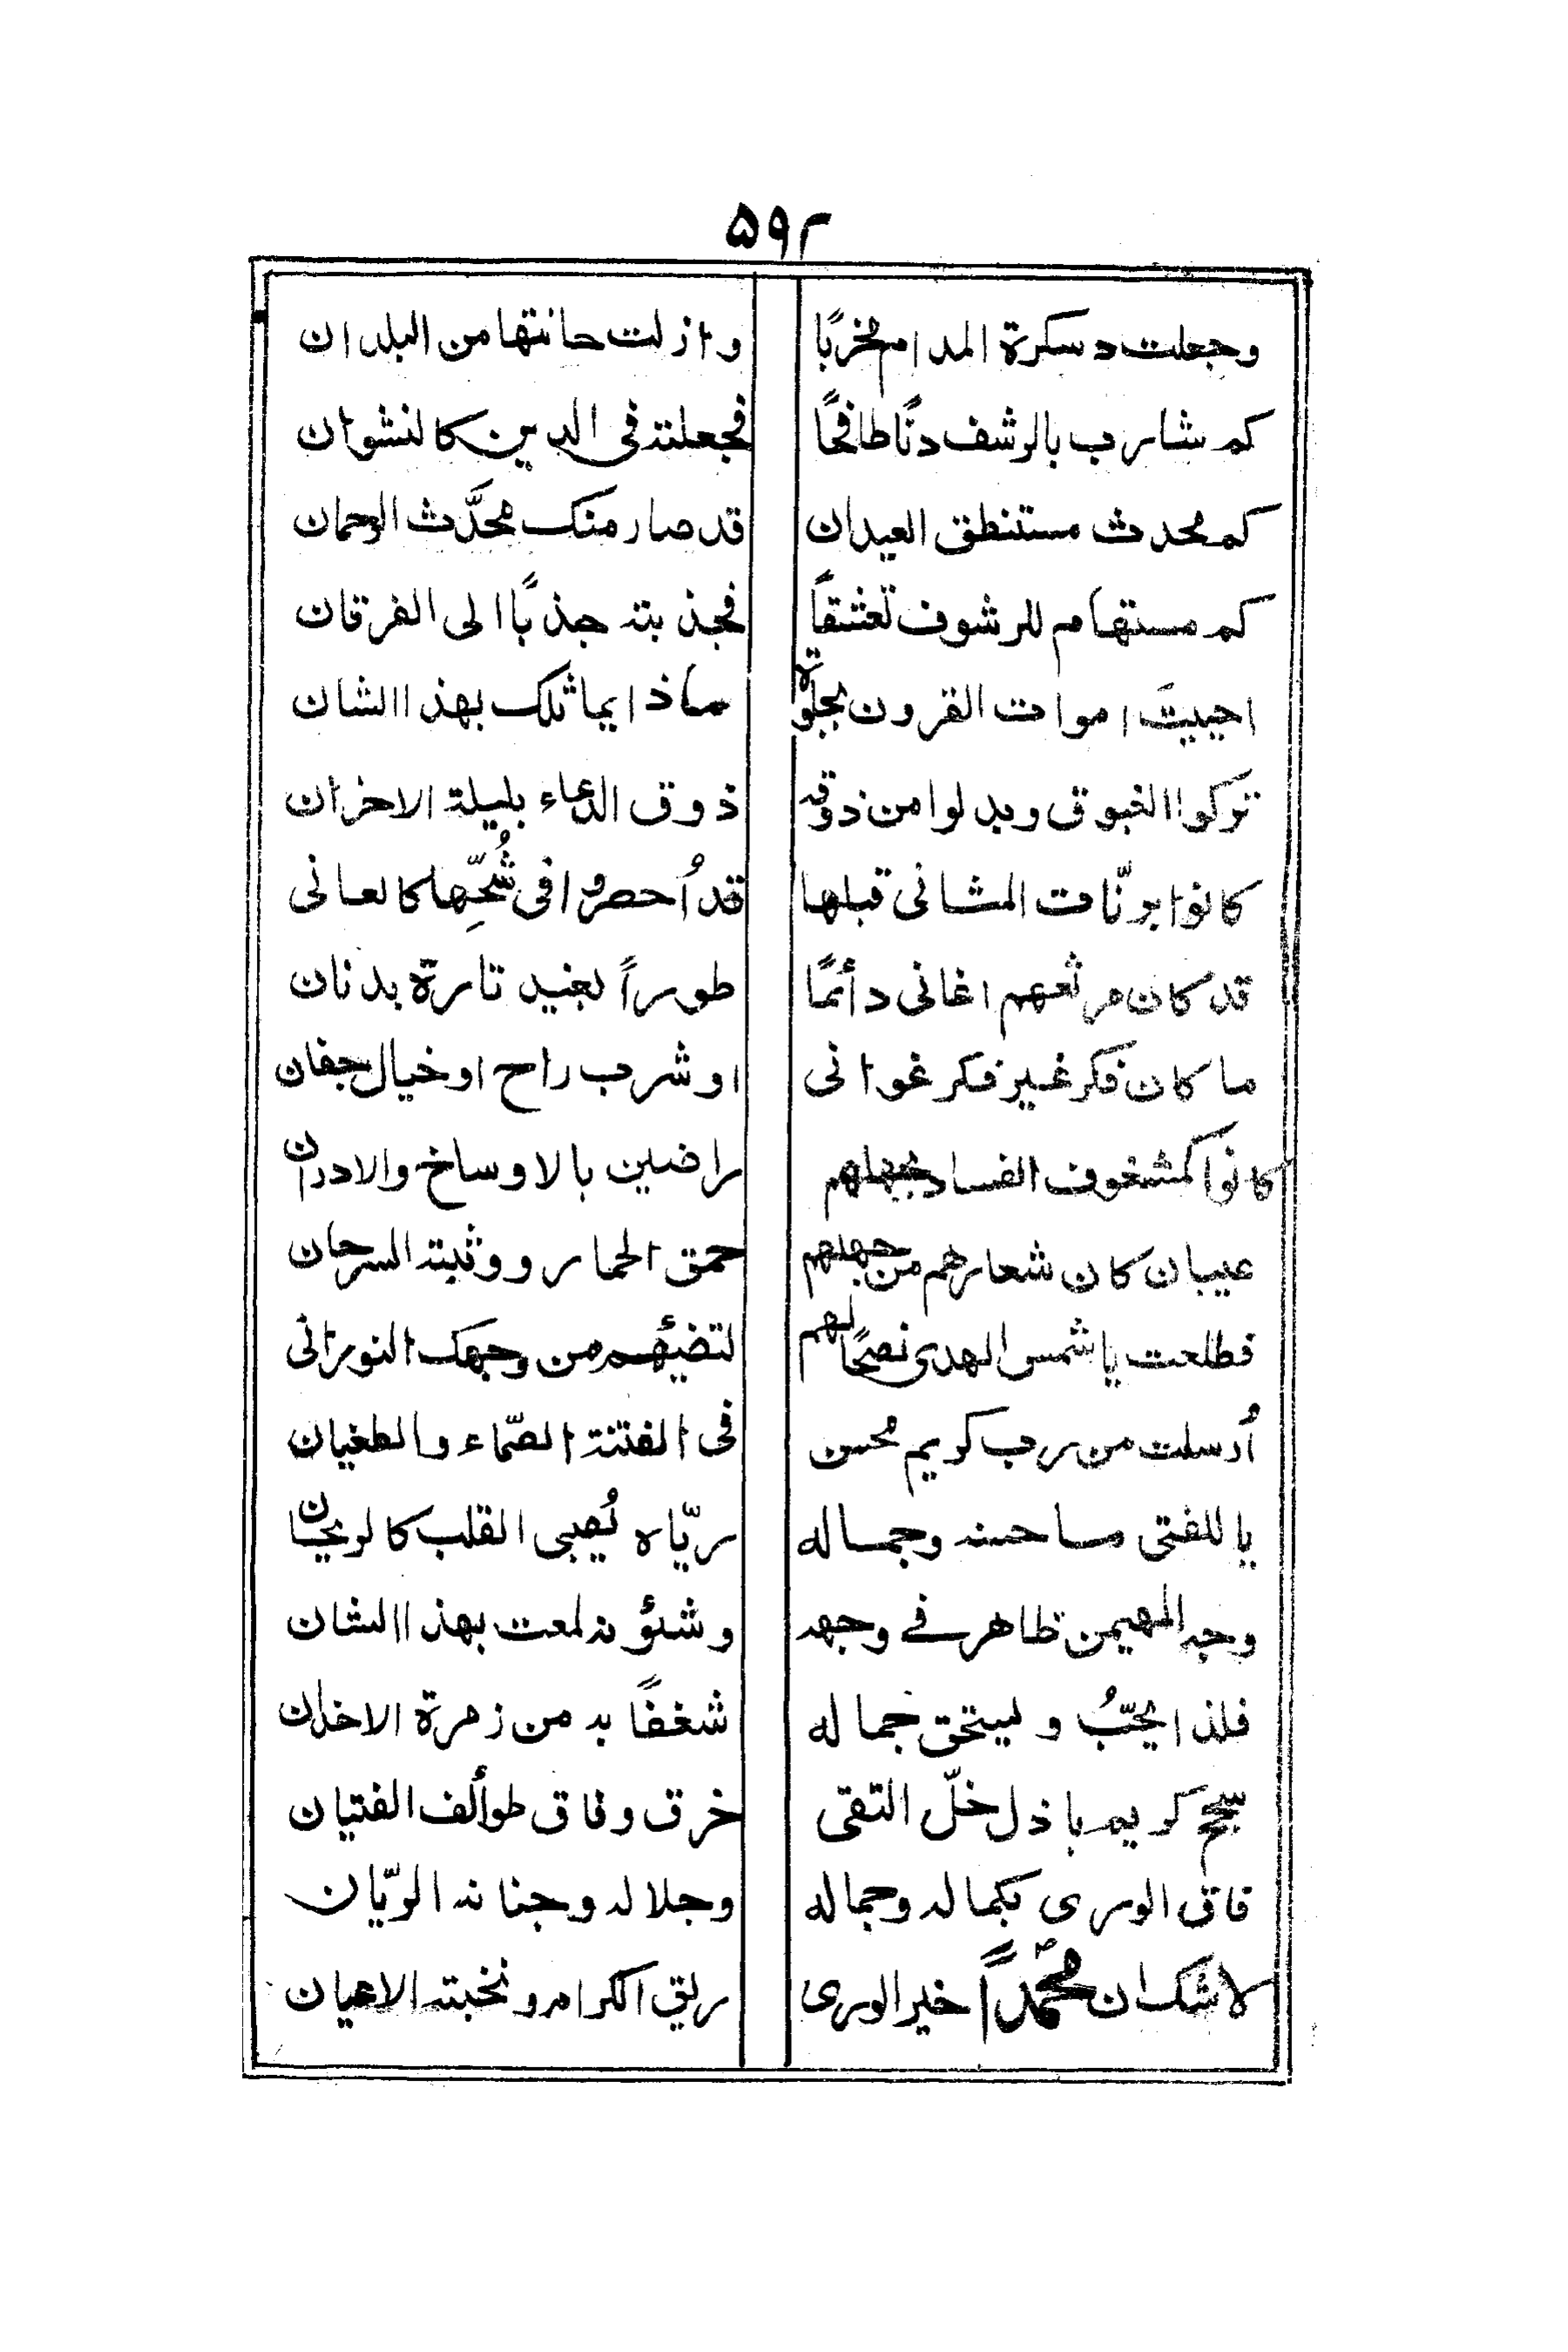 ۵۹۲
وجعلت دسكرة المدام مخربًا وازلت حانتها من البلدان
كم شارب بالرشف دنًّا طافحًا فجعلته فى الدين كالنشوان
كم محدث مستنطق العيدان قد صار منك محدَّث الرحمان
كم مستهام للرشوف تعشقًا فجذبته جذبًا الى الفرقان
احييتَ اموات القرون بجلوة ماذا يماثلك بهذا الشان
تركوا الغبوق وبدلوا من ذوقه ذوق الدعاء بليلة الاحزان
كانوا برنّات المثانى قبلها قد اُحصروا فى شُحِّها كالعانى
قد كان مرتعهم اغانى دائمًا طوراً بغيد تارة بدنان
ما كان فكر غير فكر غوانى او شرب راح او خيال جفان
كانوا كمشغوف الفساد بجهلهم راضين بالاوساخ والادران
عيبان كان شعارهم من جهلهم حمق الحمار ووثبة السرحان
فطلعت يا شمس الهدى نصحًا لهم لتضيئهم من وجهك النورانى
اُرسلت من رب كريم محسن فى الفتنة الصّماء والطغيان
يا للفتى ما حسنه وجماله ريّاه يُصبى القلب كالريحان
وجه المهيمن ظاهر فے وجهه وشئونه لمعت بهذا الشان
فلذا يحبُّ ويستحق جماله شغفًا به من زمرة الاخدان
سجح كريم باذل خلّ التقى خرق وفاق طوائف الفتيان
فاق الورى بكماله وجماله وجلاله وجنانه الريّان
لاشك ان محمداً خير الورى ريق الكرام ونخبة الاعيان